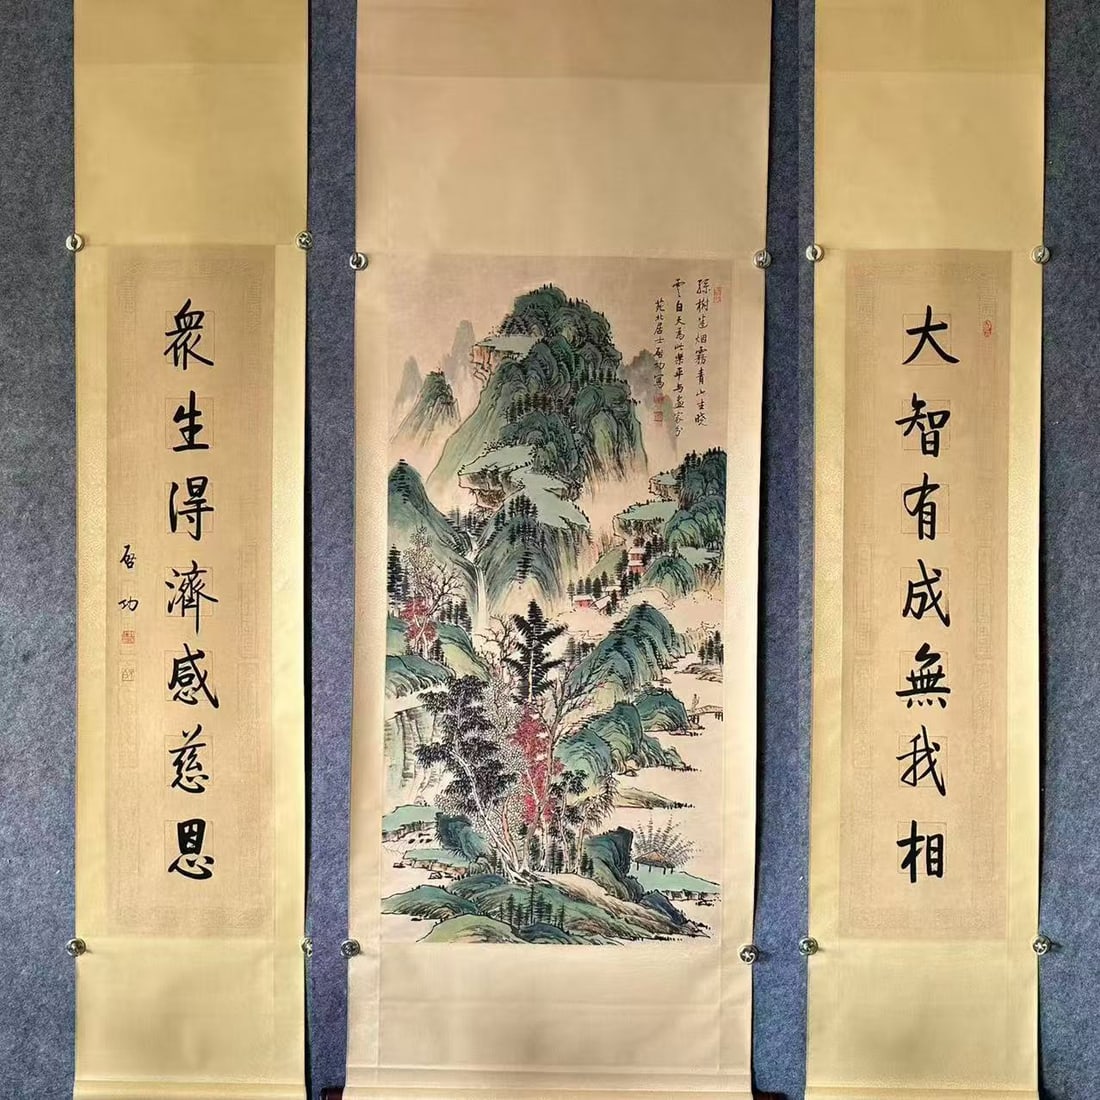 大智有成無我相
綠樹生烟霧青山生曉
雲白天為此樂平与畫家分
苑北居士啟功寫
眾生得濟感慈恩
啟功